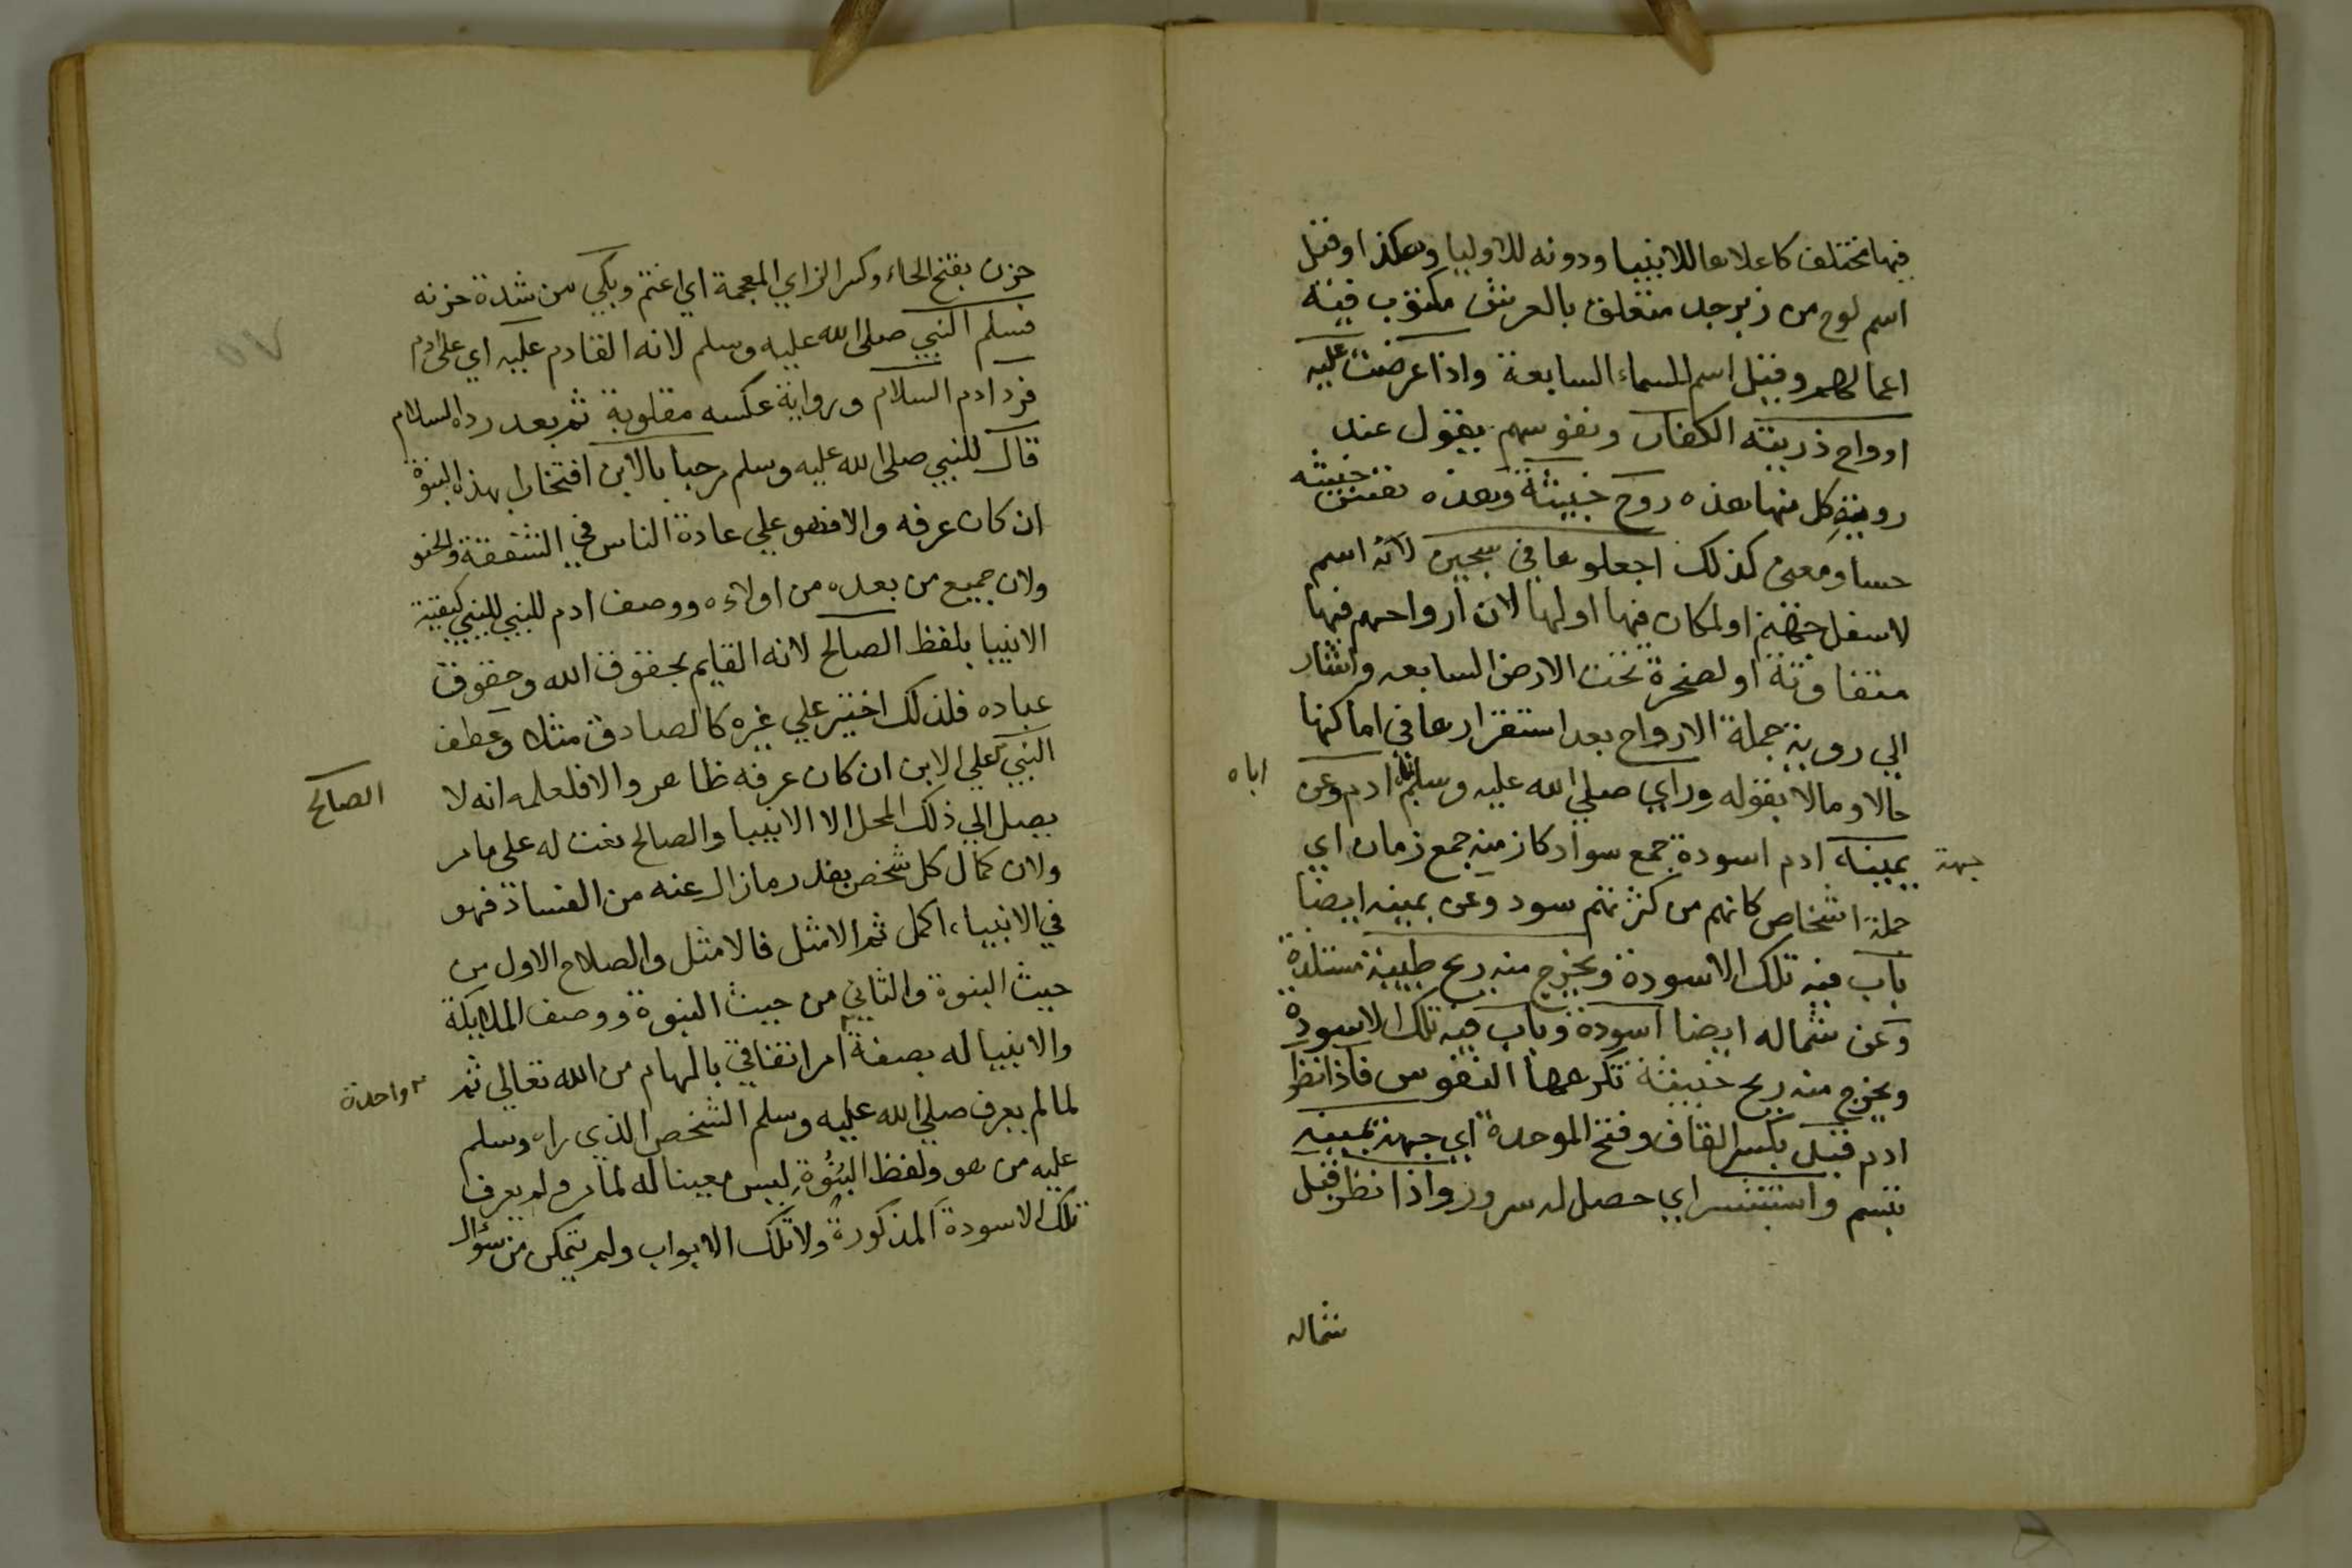 فيها مختلف كاعلاها للانبيا ودونه للاوليا وهكذا وقيل
اسم لوح من زبرجد متعلق بالعرش مكتوب فيه
اعمالهم وقيل اسم للسماء السابعة واذا عرضت عليه
ارواح ذريته الكفار ونفوسهم يقول عند
روية كل منها هذه روح خبيثة وهذه نفس خبيثه
حسا ومعنى كذلك اجعلوها في سجين لانه اسم
لاسفل جهنم اولمكان فيها اولها لان ارواحهم فيها
متفاوتة او لصخرة تحت الارض السابعه واشار
الي روية جملة الارواح بعد استقرارها في اماكنها
حالا ومالا بقوله وراي صلي الله عليه وسلم ادم وعن
اباه
يمينه ادم اسودة جمع سواد كازمنه جمع زمان اي
جهة
جملة اشخاص كانهم من كثرتهم سود وعن يمينه ايضا
باب فيه تلك الاسودة ويخرج منه ريح طيبة مستلذة
وعن شماله ايضا اسودة وباب فيه تلك الاسودة
ويخرج منه ريح خبيثة تكرهها النفوس فاذا نظر
ادم قبل بكسر القاف وفتح الموحدة اي جهة يمينه
تبسم واستبشر اي حصل له سرور واذا نظر قبل
شماله
حزن بفتح الحاء وكسر الزاي المعجمة اي اغتم وبكي من شدة حزنه
فسلم النبي صلى الله عليه وسلم لانه القادم عليه اي على ادم
فرد ادم السلام ورواية عكسه مقلوبة ثم بعد رده السلام
قال للنبي صلى الله عليه وسلم مرحبا بالابن افتخارا بهذه البنوة
ان كان عرفه والا فهو علي عادة الناس في الشفقة والحنو
ولان جميع من بعده من اولاده ووصف ادم للنبي للنبي كبقية
الانبيا بلفظ الصالح لانه القايم بحقوق الله وحقوق
عباده فلذلك اختير علي غيره كالصادق مثلا وعطف
النبي علي الابن ان كان عرفه ظاهر والا فلعلمه انه لا
الصالح
يصل الي ذلك المحل الا الانبيا والصالح نعت له على ما مر
ولان كمال كل شخص بقدر ما زال عنه من الفساد فهو
في الانبياء اكمل ثم الامثل فالامثل والصلاح الاول من
حيث البنوة والثاني من حيث النبوة ووصف الملايكة
والانبيا له بصفة امر اتفاقي بالهام من الله تعالي ثم
واحدة
لما لم يعرف صلي الله عليه وسلم الشخص الذي راه وسلم
عليه من هو ولفظ البنوة ليس معينا له لما مر ولم يعرف
تلك الاسودة المذكورة ولا تلك الابواب ولم يتمكن من سؤال